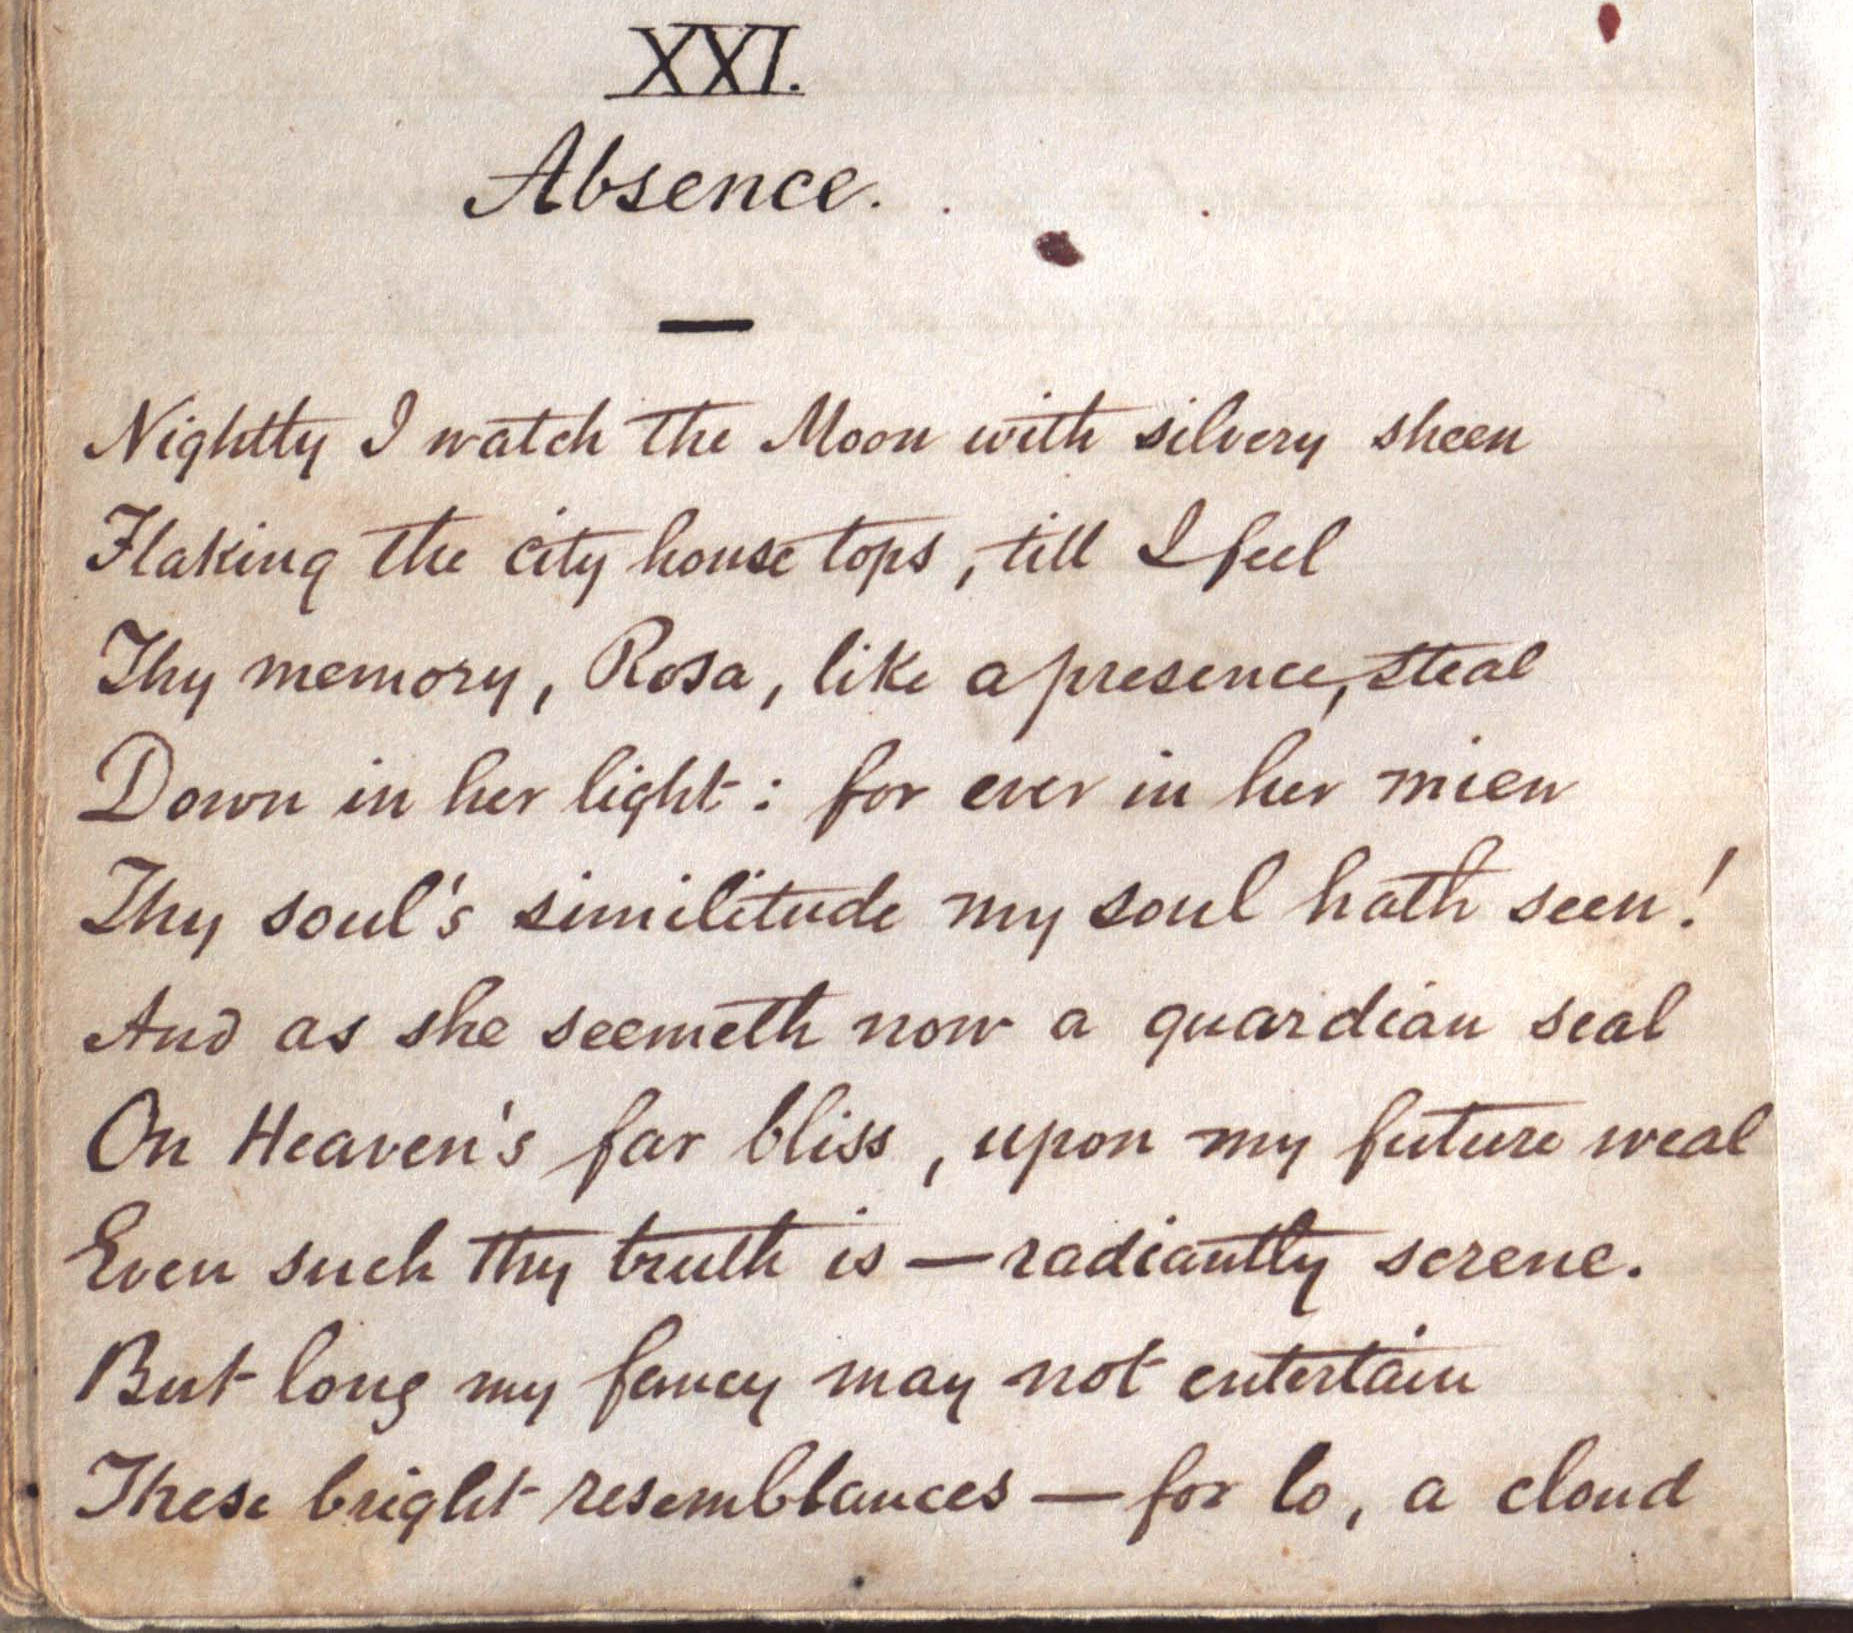 XXI.
Absence.
Nightly I watch the Moon with silvery sheen
Flaking the city house tops, till I feel
Thy memory, Rosa, like a presence, steal
Down in her light: for ever in her mien
Thy soul's similitude my soul hath seen!
And as she seemeth now a guardian seal
On Heaven's far bliss, upon my future weal
Even such thy truth is — radiantly serene.
But long my fancy may not entertain
These bright resemblances — for lo, a cloud